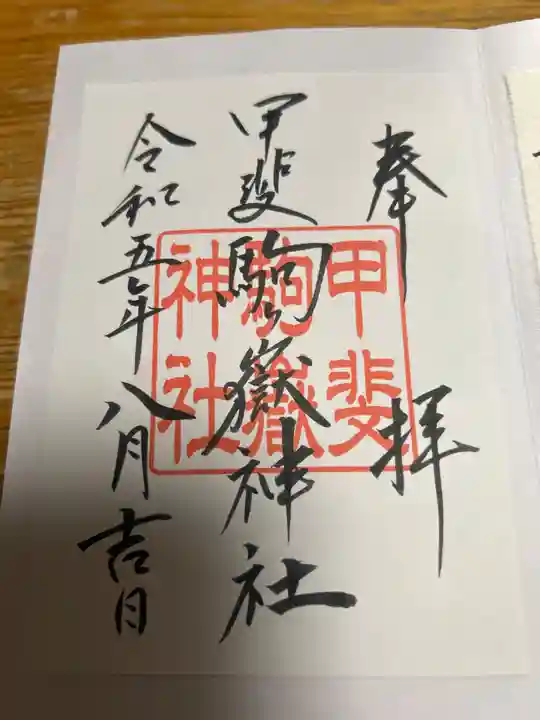 奉拝
甲斐駒ヶ嶽神社
令和五年八月吉日
甲斐
駒嶽
神社